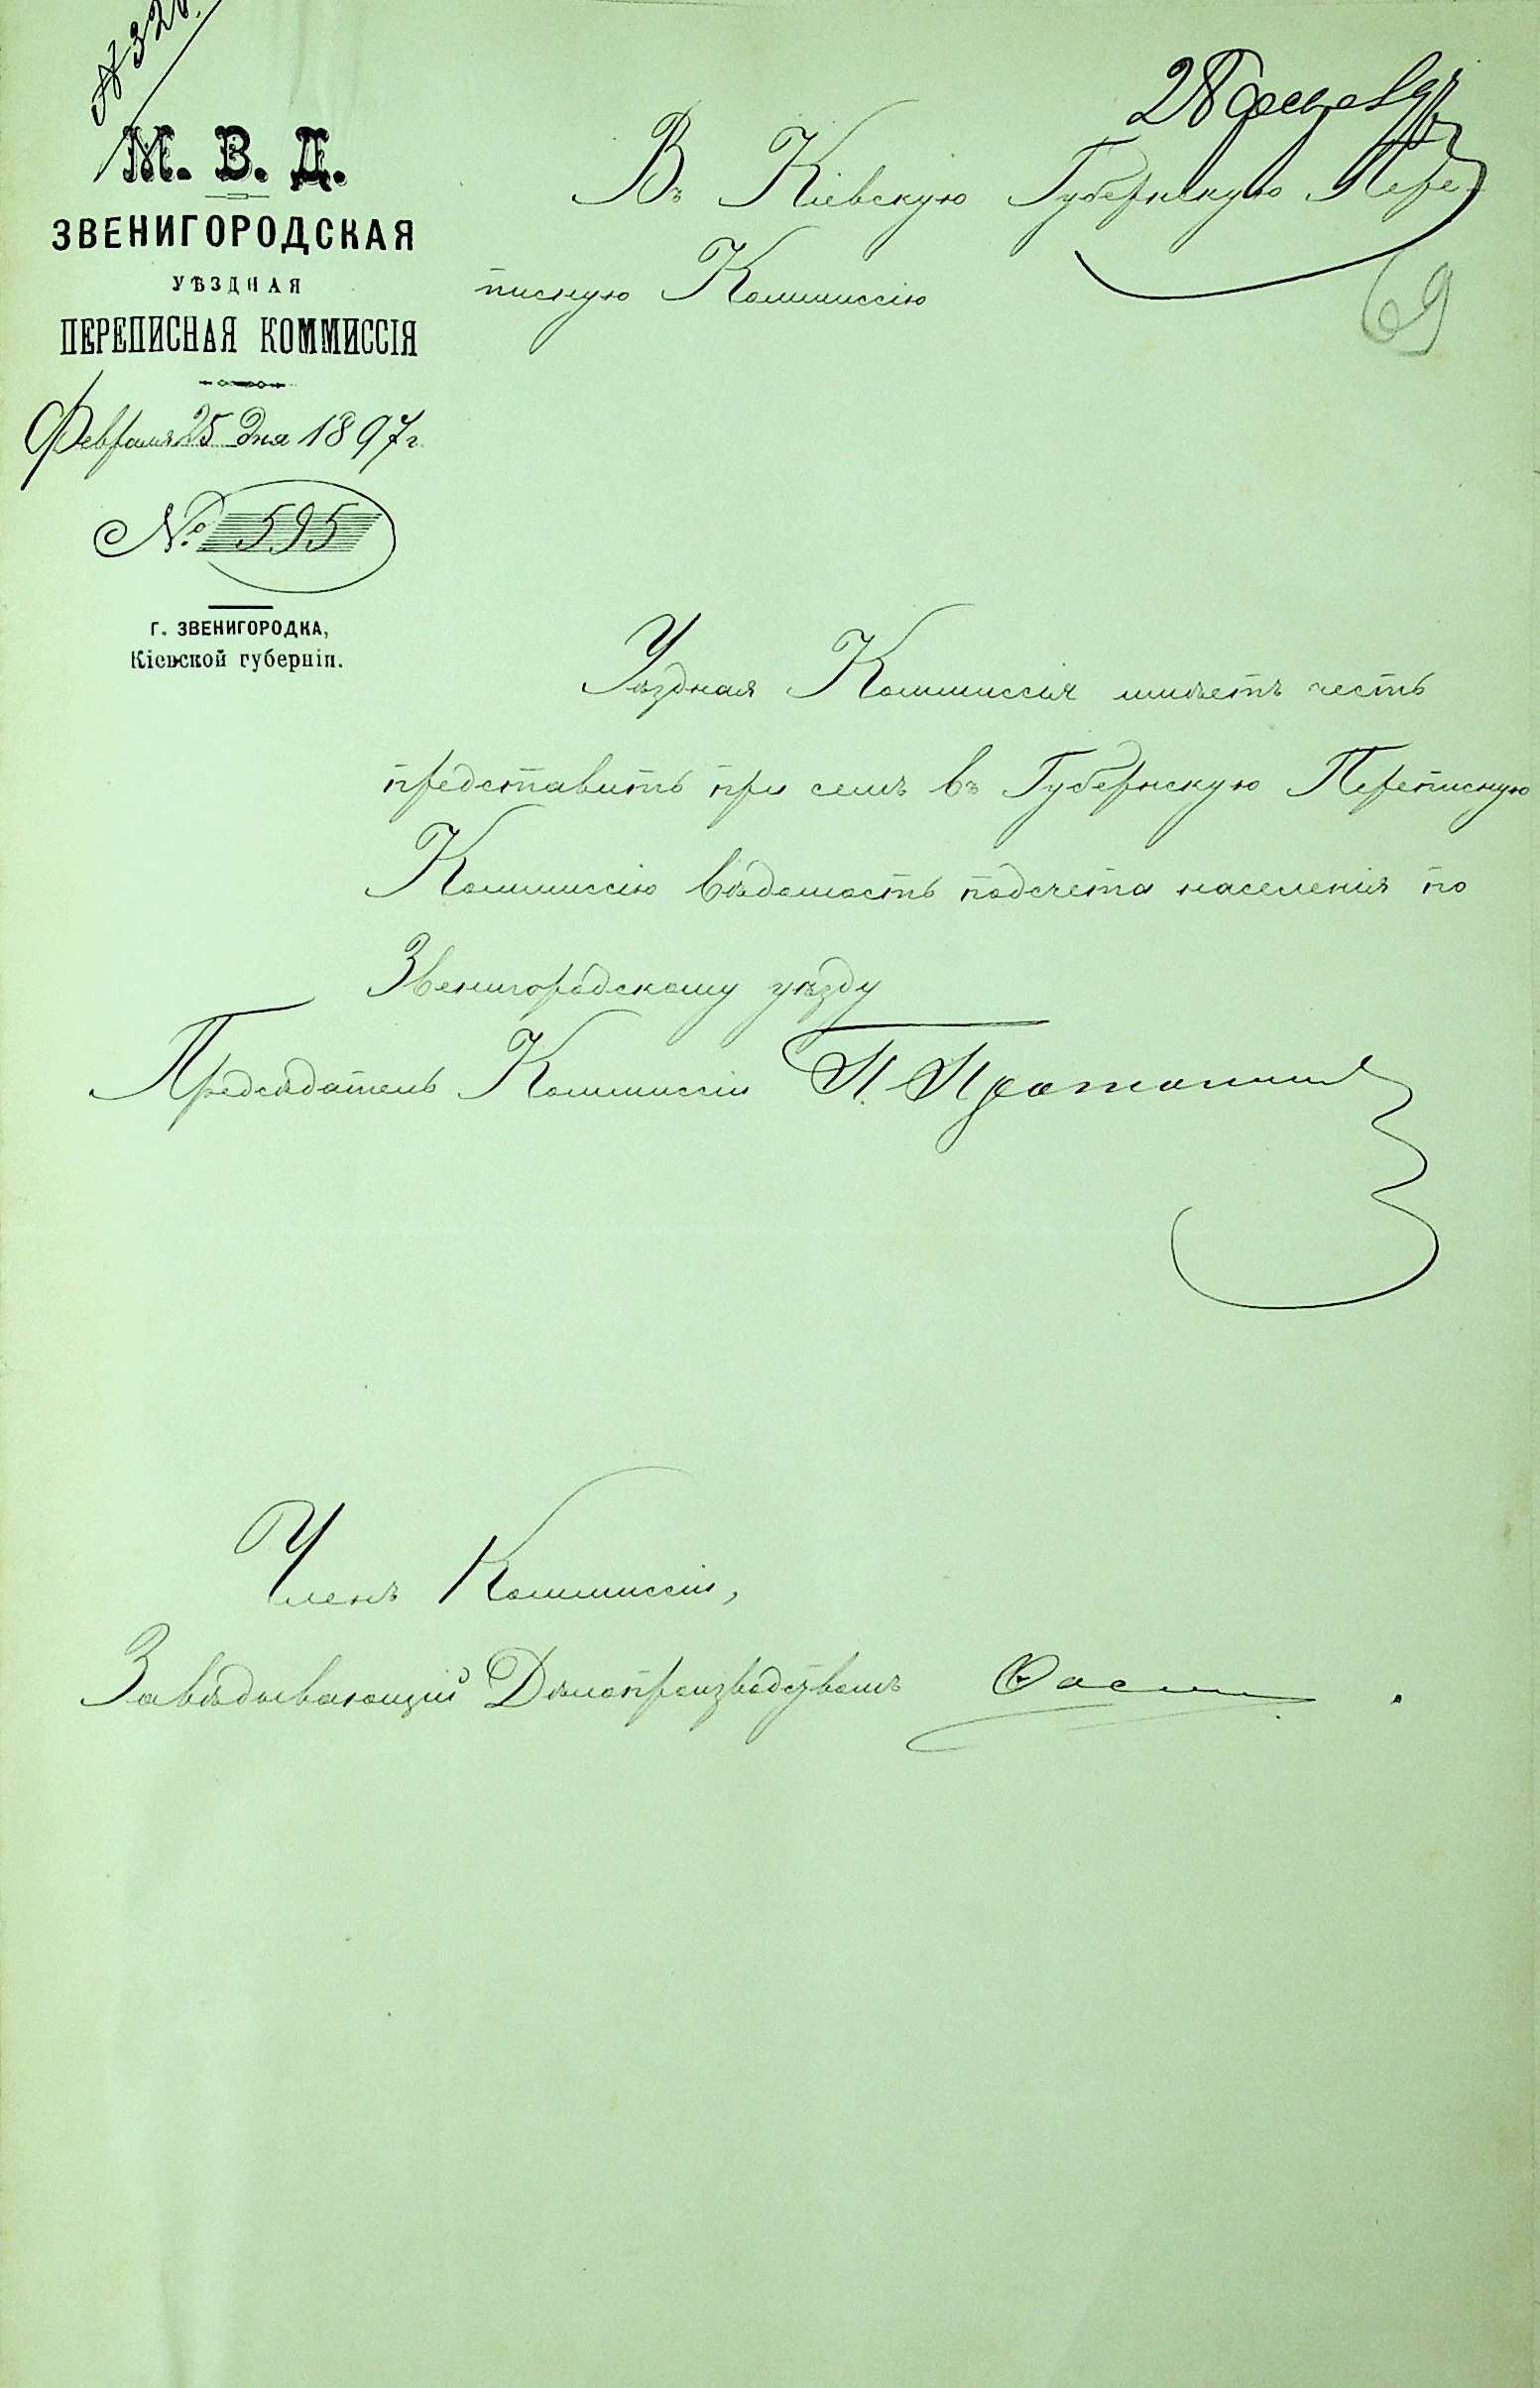 М. В. Д.
ЗВЕНИГОРОДСКАЯ
УѢЗДНАЯ
ПЕРЕПИСНАЯ КОММИССІЯ
Февраля 25 дня 1897 г.
№ 595
Г. ЗВЕНИГОРОДКА,
Кіевской губерніи.
69
Въ Кіевскую Губернскую Пере-
писную Коммиссію
Уѣздная Коммиссія имѣетъ честь
представить при семъ въ Губернскую Переписную
Коммиссію вѣдомость подсчета населенія по
Звенигородскому уѣзду
Предсѣдатель Коммиссіи П.
Членъ Коммиссіи,
Завѣдывающій Дѣлопроизводствомъ